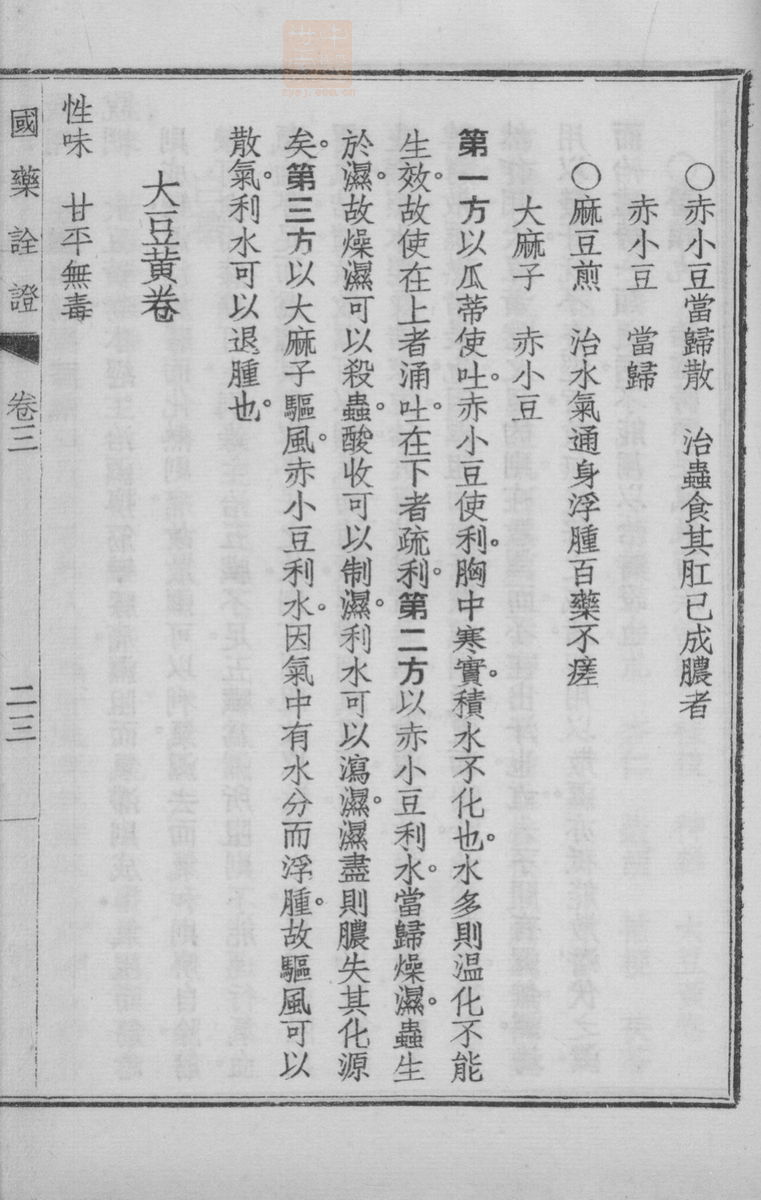 〇赤小豆當歸散　治蟲食其肛已成膿者
赤小豆　當歸
〇麻豆煎　治水氣通身浮腫百藥不瘥
大麻子　赤小豆
第一方以瓜蒂使吐。赤小豆使利。胸中寒實。積水不化也。水多則温化不能
生效。故使在上者涌吐。在下者疏利。第二方以赤小豆利水。當歸燥濕。蟲生
於濕。故燥濕可以殺蟲。酸收可以制濕。利水可以瀉濕。濕盡則膿失其化源
矣。第三方以大麻子驅風。赤小豆利水。因氣中有水分而浮腫。故驅風可以
散氣。利水可以退腫也。
大豆黃卷
性味　甘平無毒
國藥詮證　卷三　二三